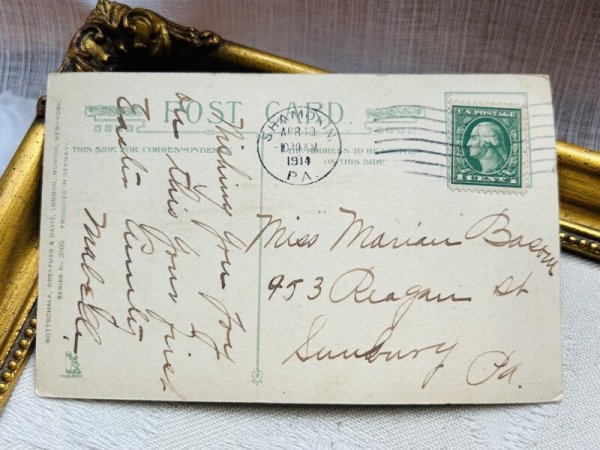 POST CARD
THIS SIDE FOR CORRESPONDENCE
ADDRESS TO BE
ON THIS SIDE
SHAMOKIN
APR 13
10 30 AM
1914
PA.
U.S. POSTAGE
1 CENT 1
Wishing you Joy
on this your first
Easter
Aunty
Mabelle.
Miss Marian Basom
953 Reagan St
Sunbury
Pa.
GOTTSCHALK, DREYFUSS & DAVIS, LONDON, MUNICH, NEW-YORK.
SERIES No. 2005 PRODUCED IN GERMANY